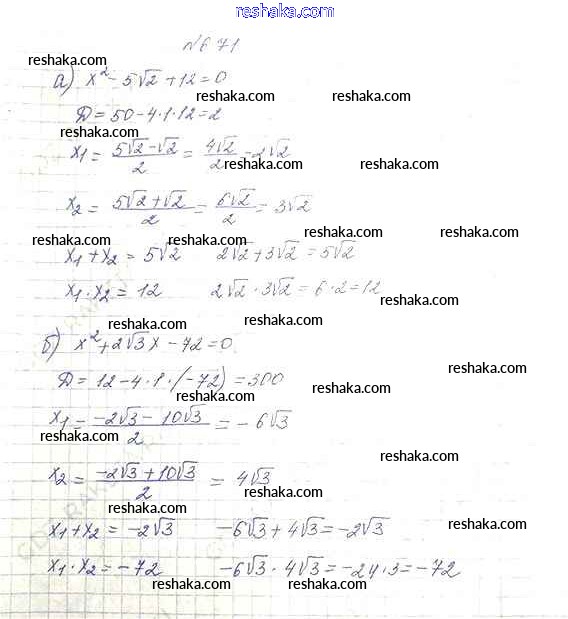 reshaka.com
reshaka.com
№671
reshaka.com
а) x² - 5√2 + 12 = 0
reshaka.com reshaka.com
D = 50 - 4·1·12 = 2
reshaka.com
x₁ = (5√2 - √2)/2 = 4√2/2 = 2√2
reshaka.com reshaka.com
x₂ = (5√2 + √2)/2 = 6√2/2 = 3√2
reshaka.com reshaka.com reshaka.com
x₁ + x₂ = 5√2 2√2 + 3√2 = 5√2
x₁ · x₂ = 12 2√2 · 3√2 = 6·2 = 12
reshaka.com reshaka.com
б) x² + 2√3x - 72 = 0
reshaka.com
D = 12 - 4·1·(-72) = 300
reshaka.com reshaka.com
x₁ = (-2√3 - 10√3)/2 = -6√3
reshaka.com reshaka.com
x₂ = (-2√3 + 10√3)/2 = 4√3
reshaka.com
x₁ + x₂ = -2√3 -6√3 + 4√3 = -2√3
reshaka.com reshaka.com
x₁ · x₂ = -72 -6√3 · 4√3 = -24·3 = -72
reshaka.com reshaka.com